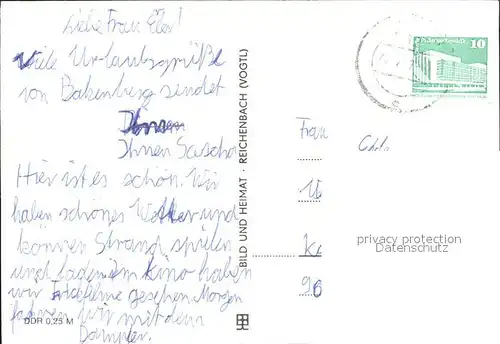 Liebe Frau Eler!
Viele Urlaubsgrüße
von Bakenberg sendet
Ihnen
Ihnen Sascha
Hier ist es schön. Wir
haben schönes Wetter und
können Strand spielen
und baden. Im Kino haben
wir Trickfilme gesehen. Morgen
fahren wir mit dem
Dampfer.
DDR 0,25 M
BILD UND HEIMAT · REICHENBACH (VOGTL)
10
Frau
privacy protection
Datenschutz
96